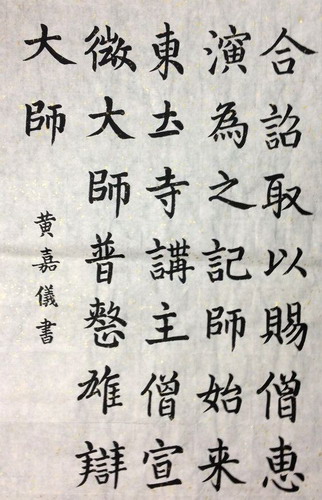 合詔取以賜僧惠
演為之記師始来
東土寺講主僧宣
微大師普整雄辯
大師
黄嘉儀書